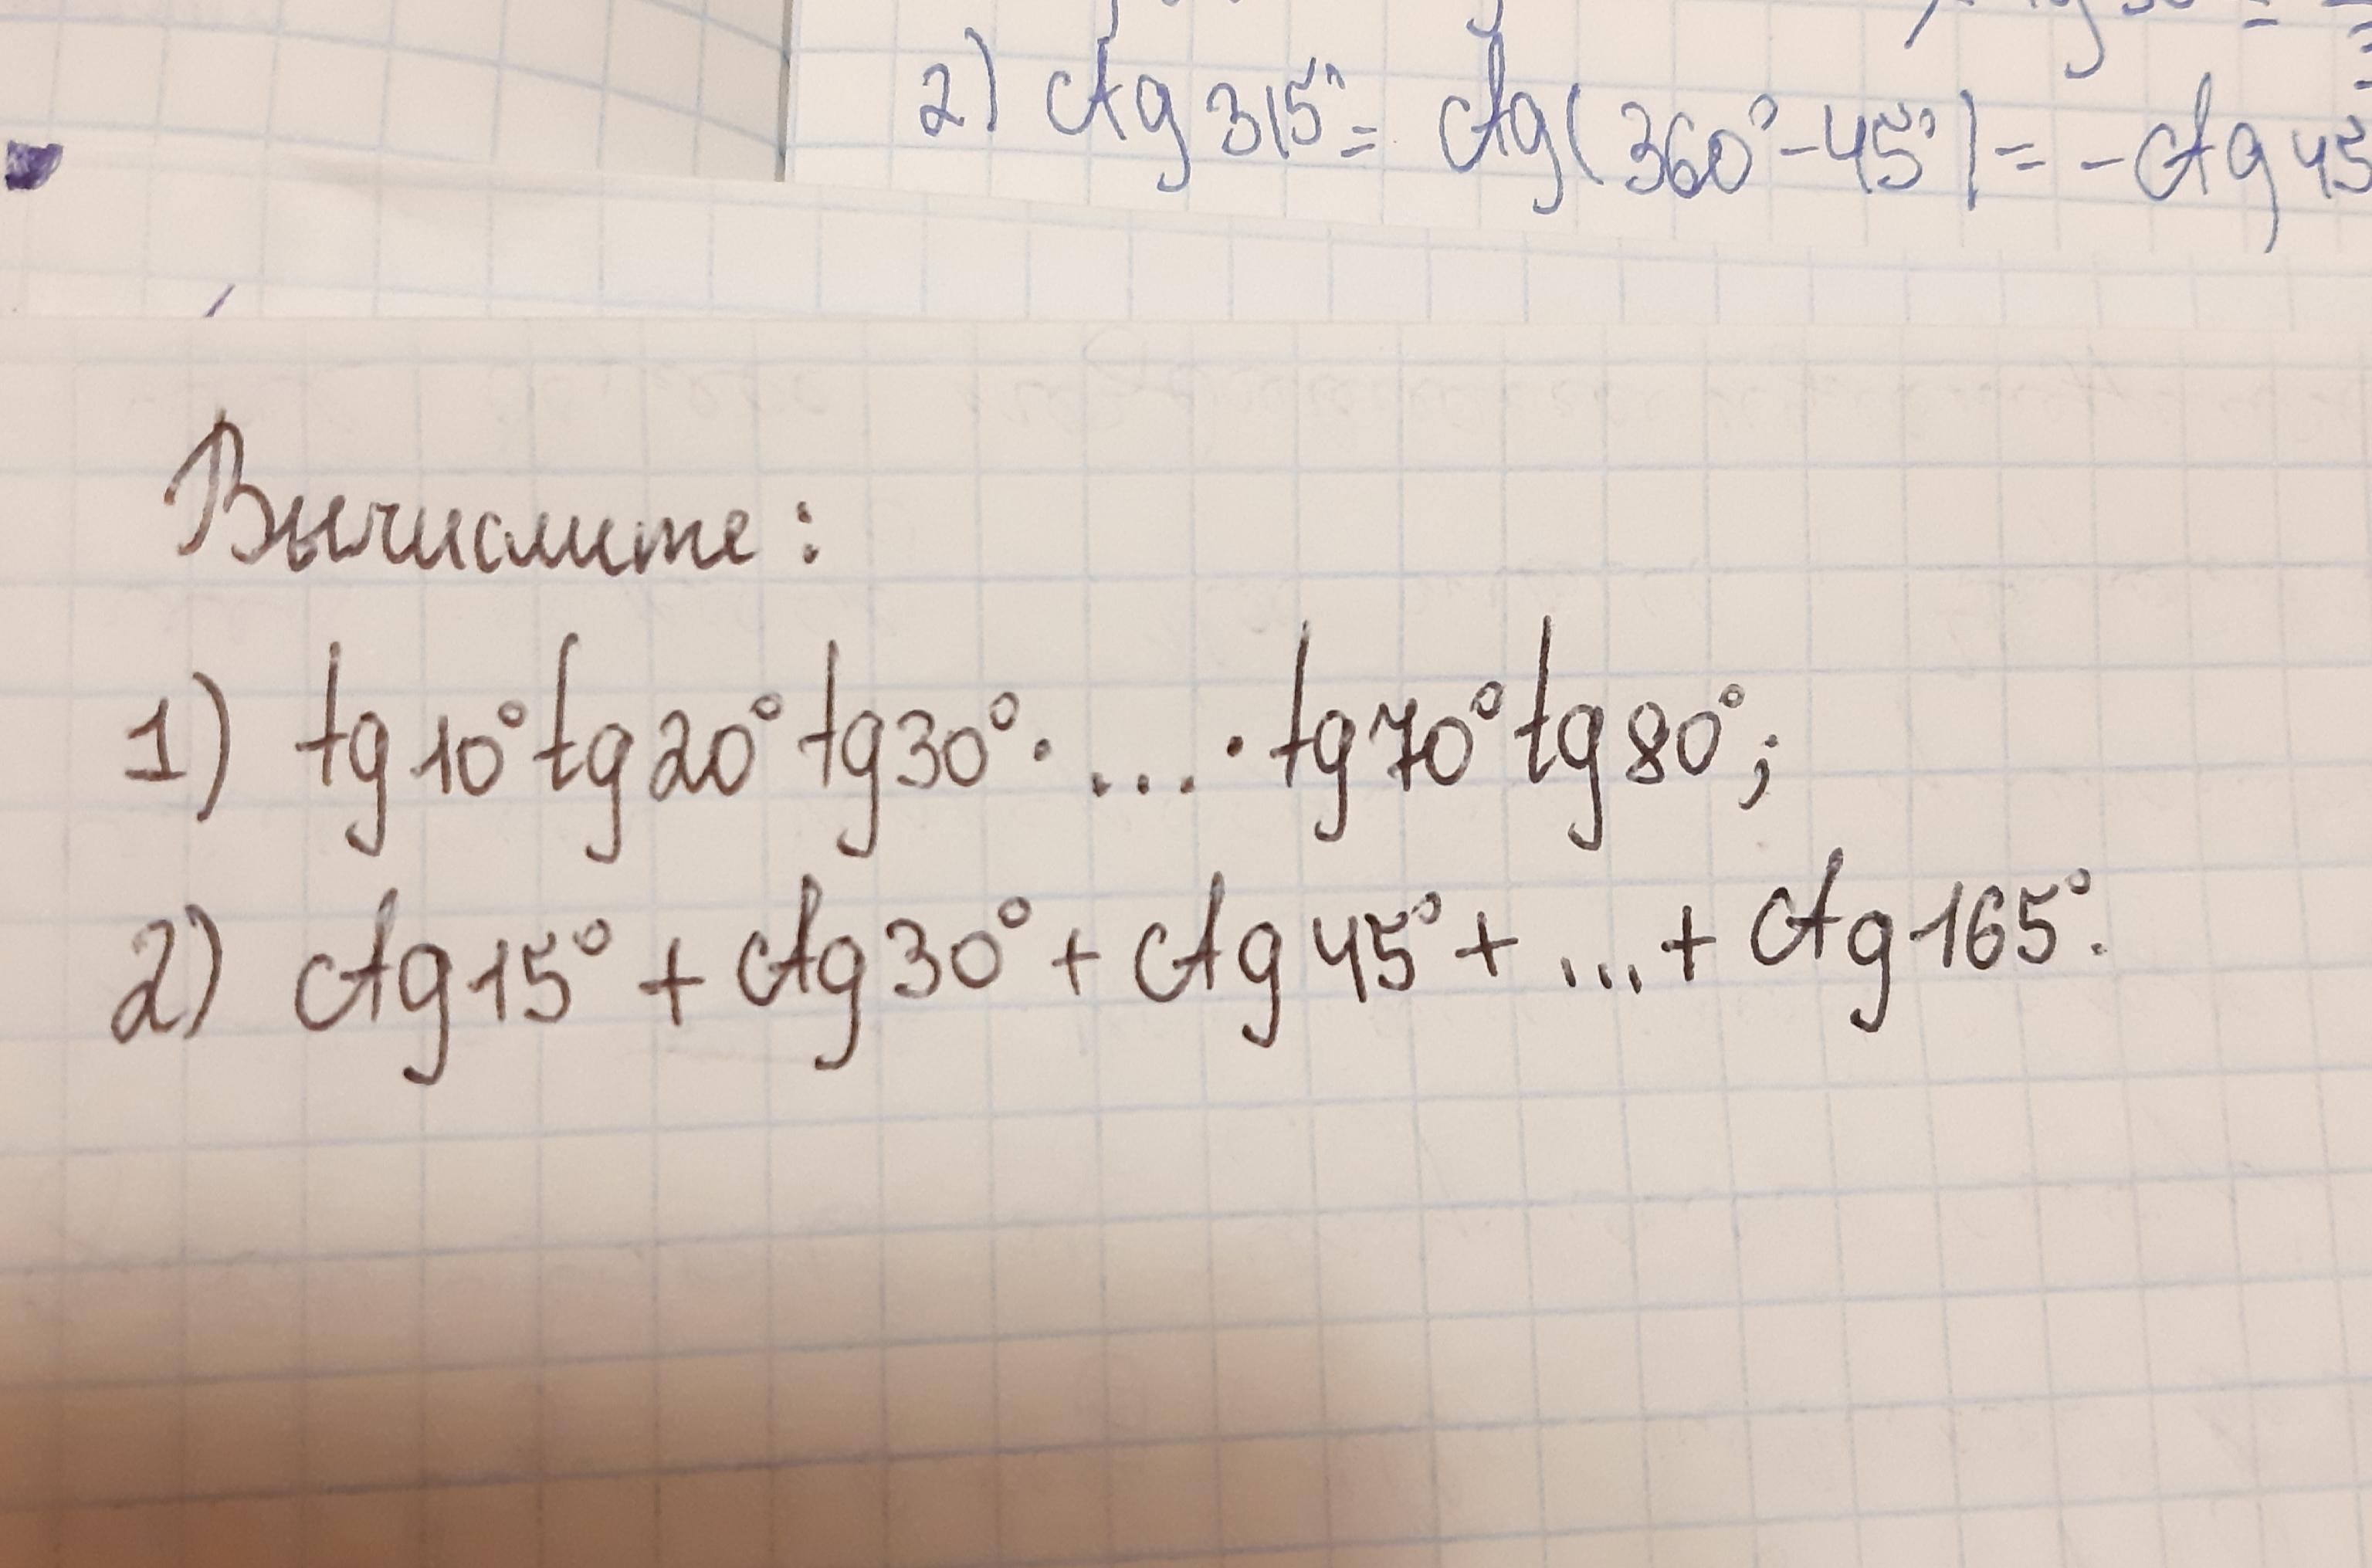 2) ctg 315° = ctg(360° - 45°) = - ctg 45
Вычислите:
1) tg 10° tg 20° tg 30° · .... · tg 70° tg 80°;
2) ctg 15° + ctg 30° + ctg 45° + ... + ctg 165°.